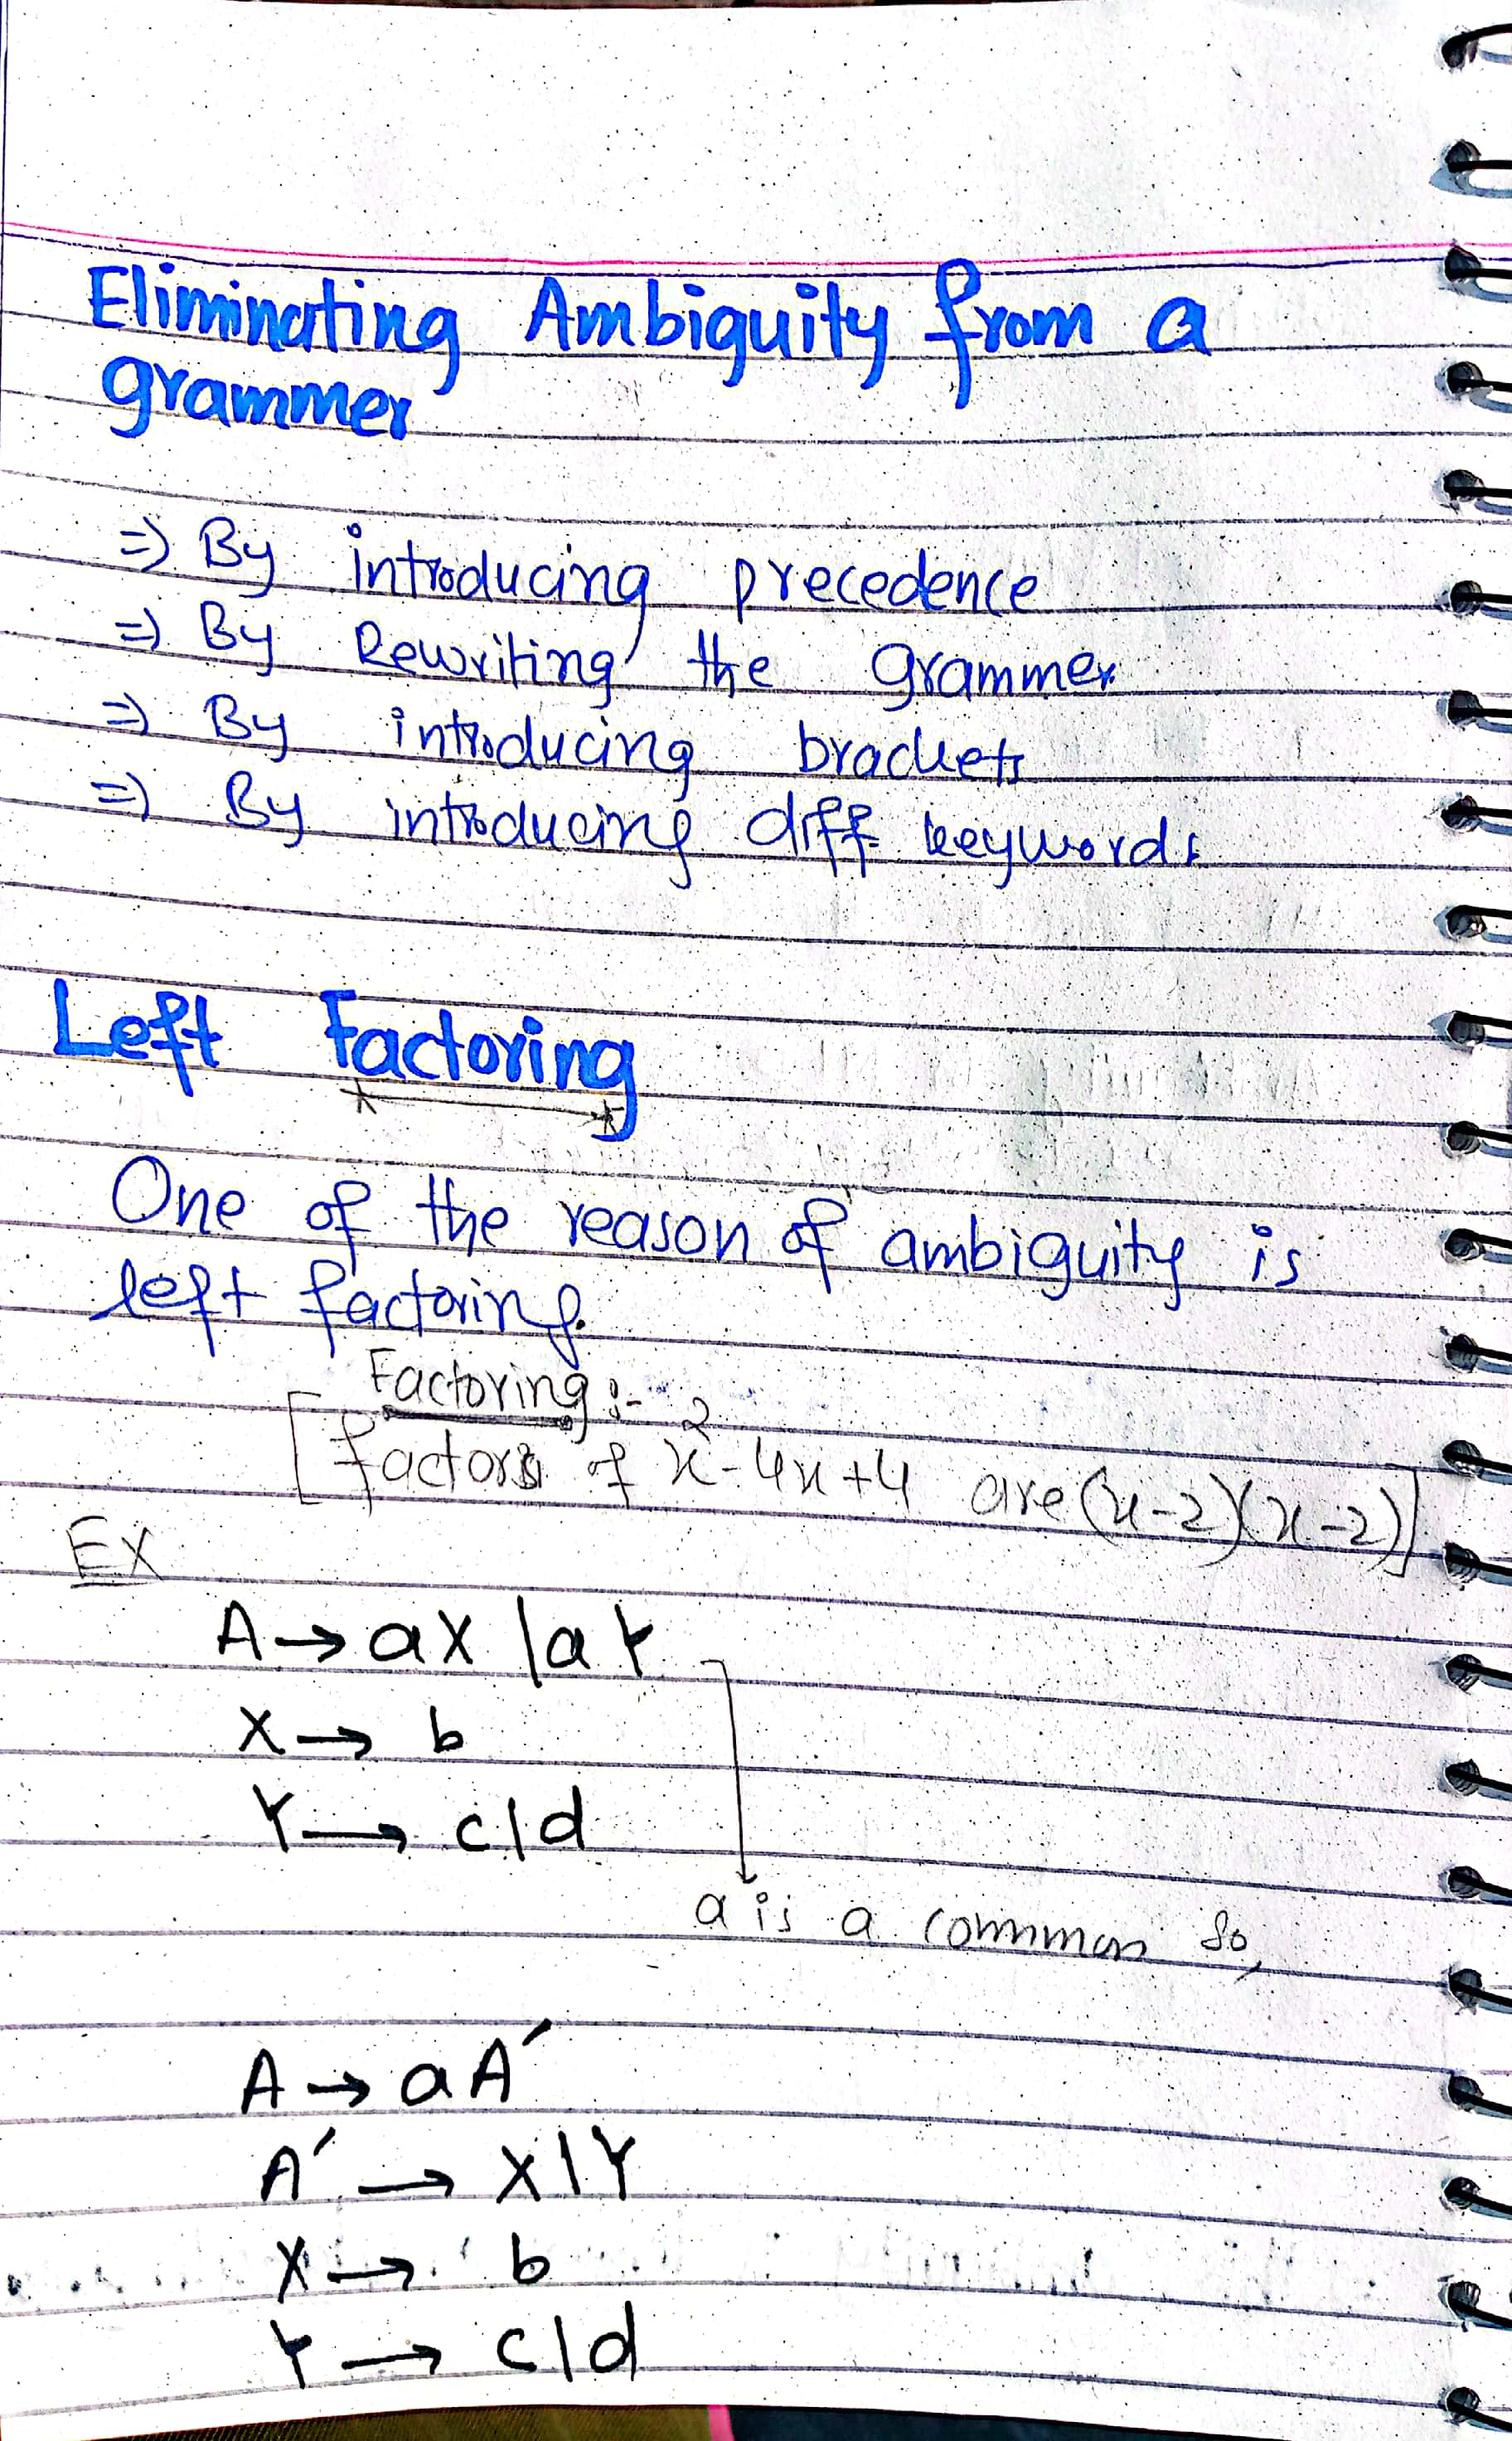 Eliminating Ambiguity from a
grammer
⇒ By introducing precedence
⇒ By Rewriting the grammer
⇒ By introducing brackets
⇒ By introducing diff keywords
Left Factoring
One of the reason of ambiguity is
left factoring.
Factoring:-
[factors of x²-4x+4 are (x-2)(x-2)]
Ex
A → aX | aY
X → b
Y → c|d
a is a common So,
A → aA'
A' → X|Y
X → b
Y → c|d